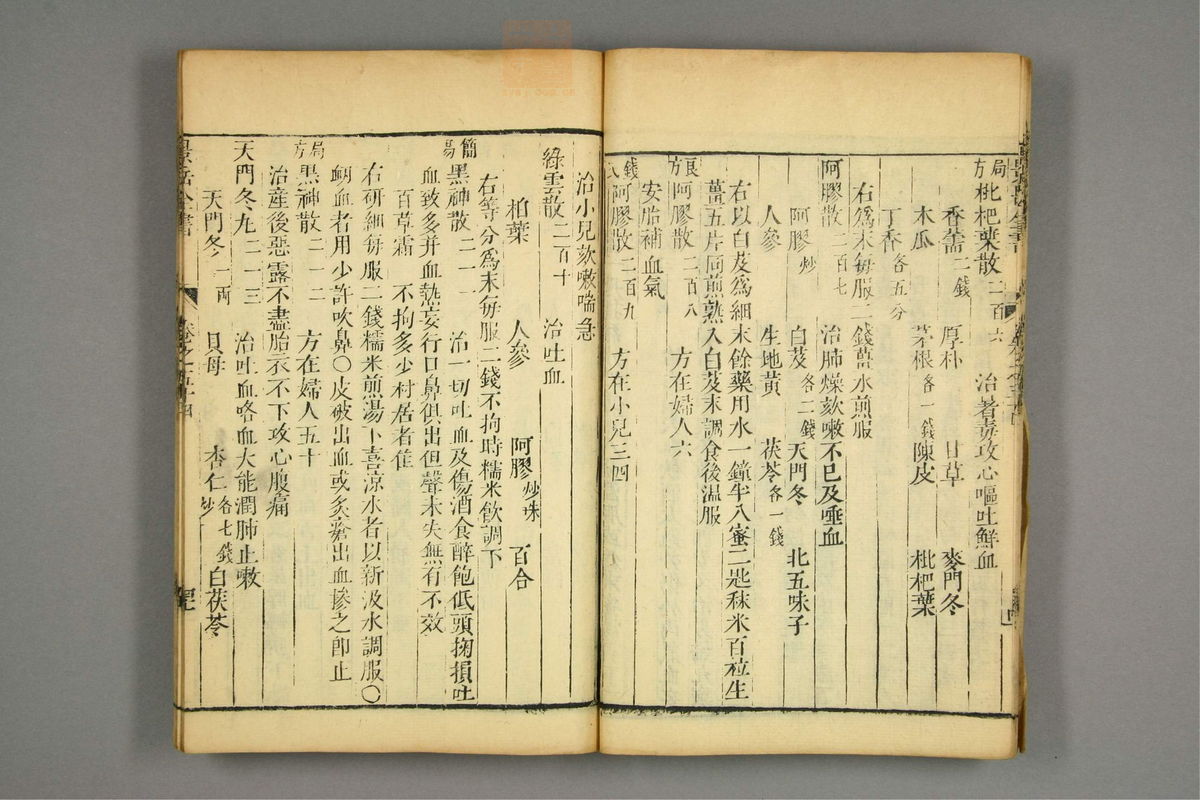 局方枇杷葉散二百六 治著毒攻心嘔吐鮮血
香薷二錢 厚朴 甘草 麥門冬
木瓜 茅根各一錢 陳皮 枇杷葉
丁香各五分
右為末每服二錢薑水煎服
阿膠散二百七 治肺燥欬嗽不已及唾血
阿膠炒 白芨各二錢 天門冬 北五味子
人參 生地黃 茯苓各一錢
右以白芨為細末餘藥用水一鐘半入蜜二匙秫米百粒生
薑五片同煎熟入白芨末調食後溫服
良方阿膠散二百八 方在婦人六
安胎補血氣
錢氏阿膠散二百九 方在小兒三四
治小兒欬嗽喘急
綠雲散二百十 治吐血
柏葉 人參 阿膠炒珠 百合
右等分為末每服二錢不拘時糯米飲調下
簡易黑神散二一一 治一切吐血及傷酒食醉飽低頭掬損吐
血致多并血熱妄行口鼻俱出但聲未失無有不效
百草霜 不拘多少村居者佳
右研細每服二錢糯米煎湯下喜涼水者以新汲水調服○
衂血者用少許吹鼻○皮破出血或灸瘡出血摻之即止
局方黑神散二一二 方在婦人五十
治產後惡露不盡胎衣不下攻心腹痛
天門冬丸二一三 治吐血咯血大能潤肺止嗽
天門冬一兩 貝母 杏仁炒各七錢 白茯苓
景岳全書
卷之五十四